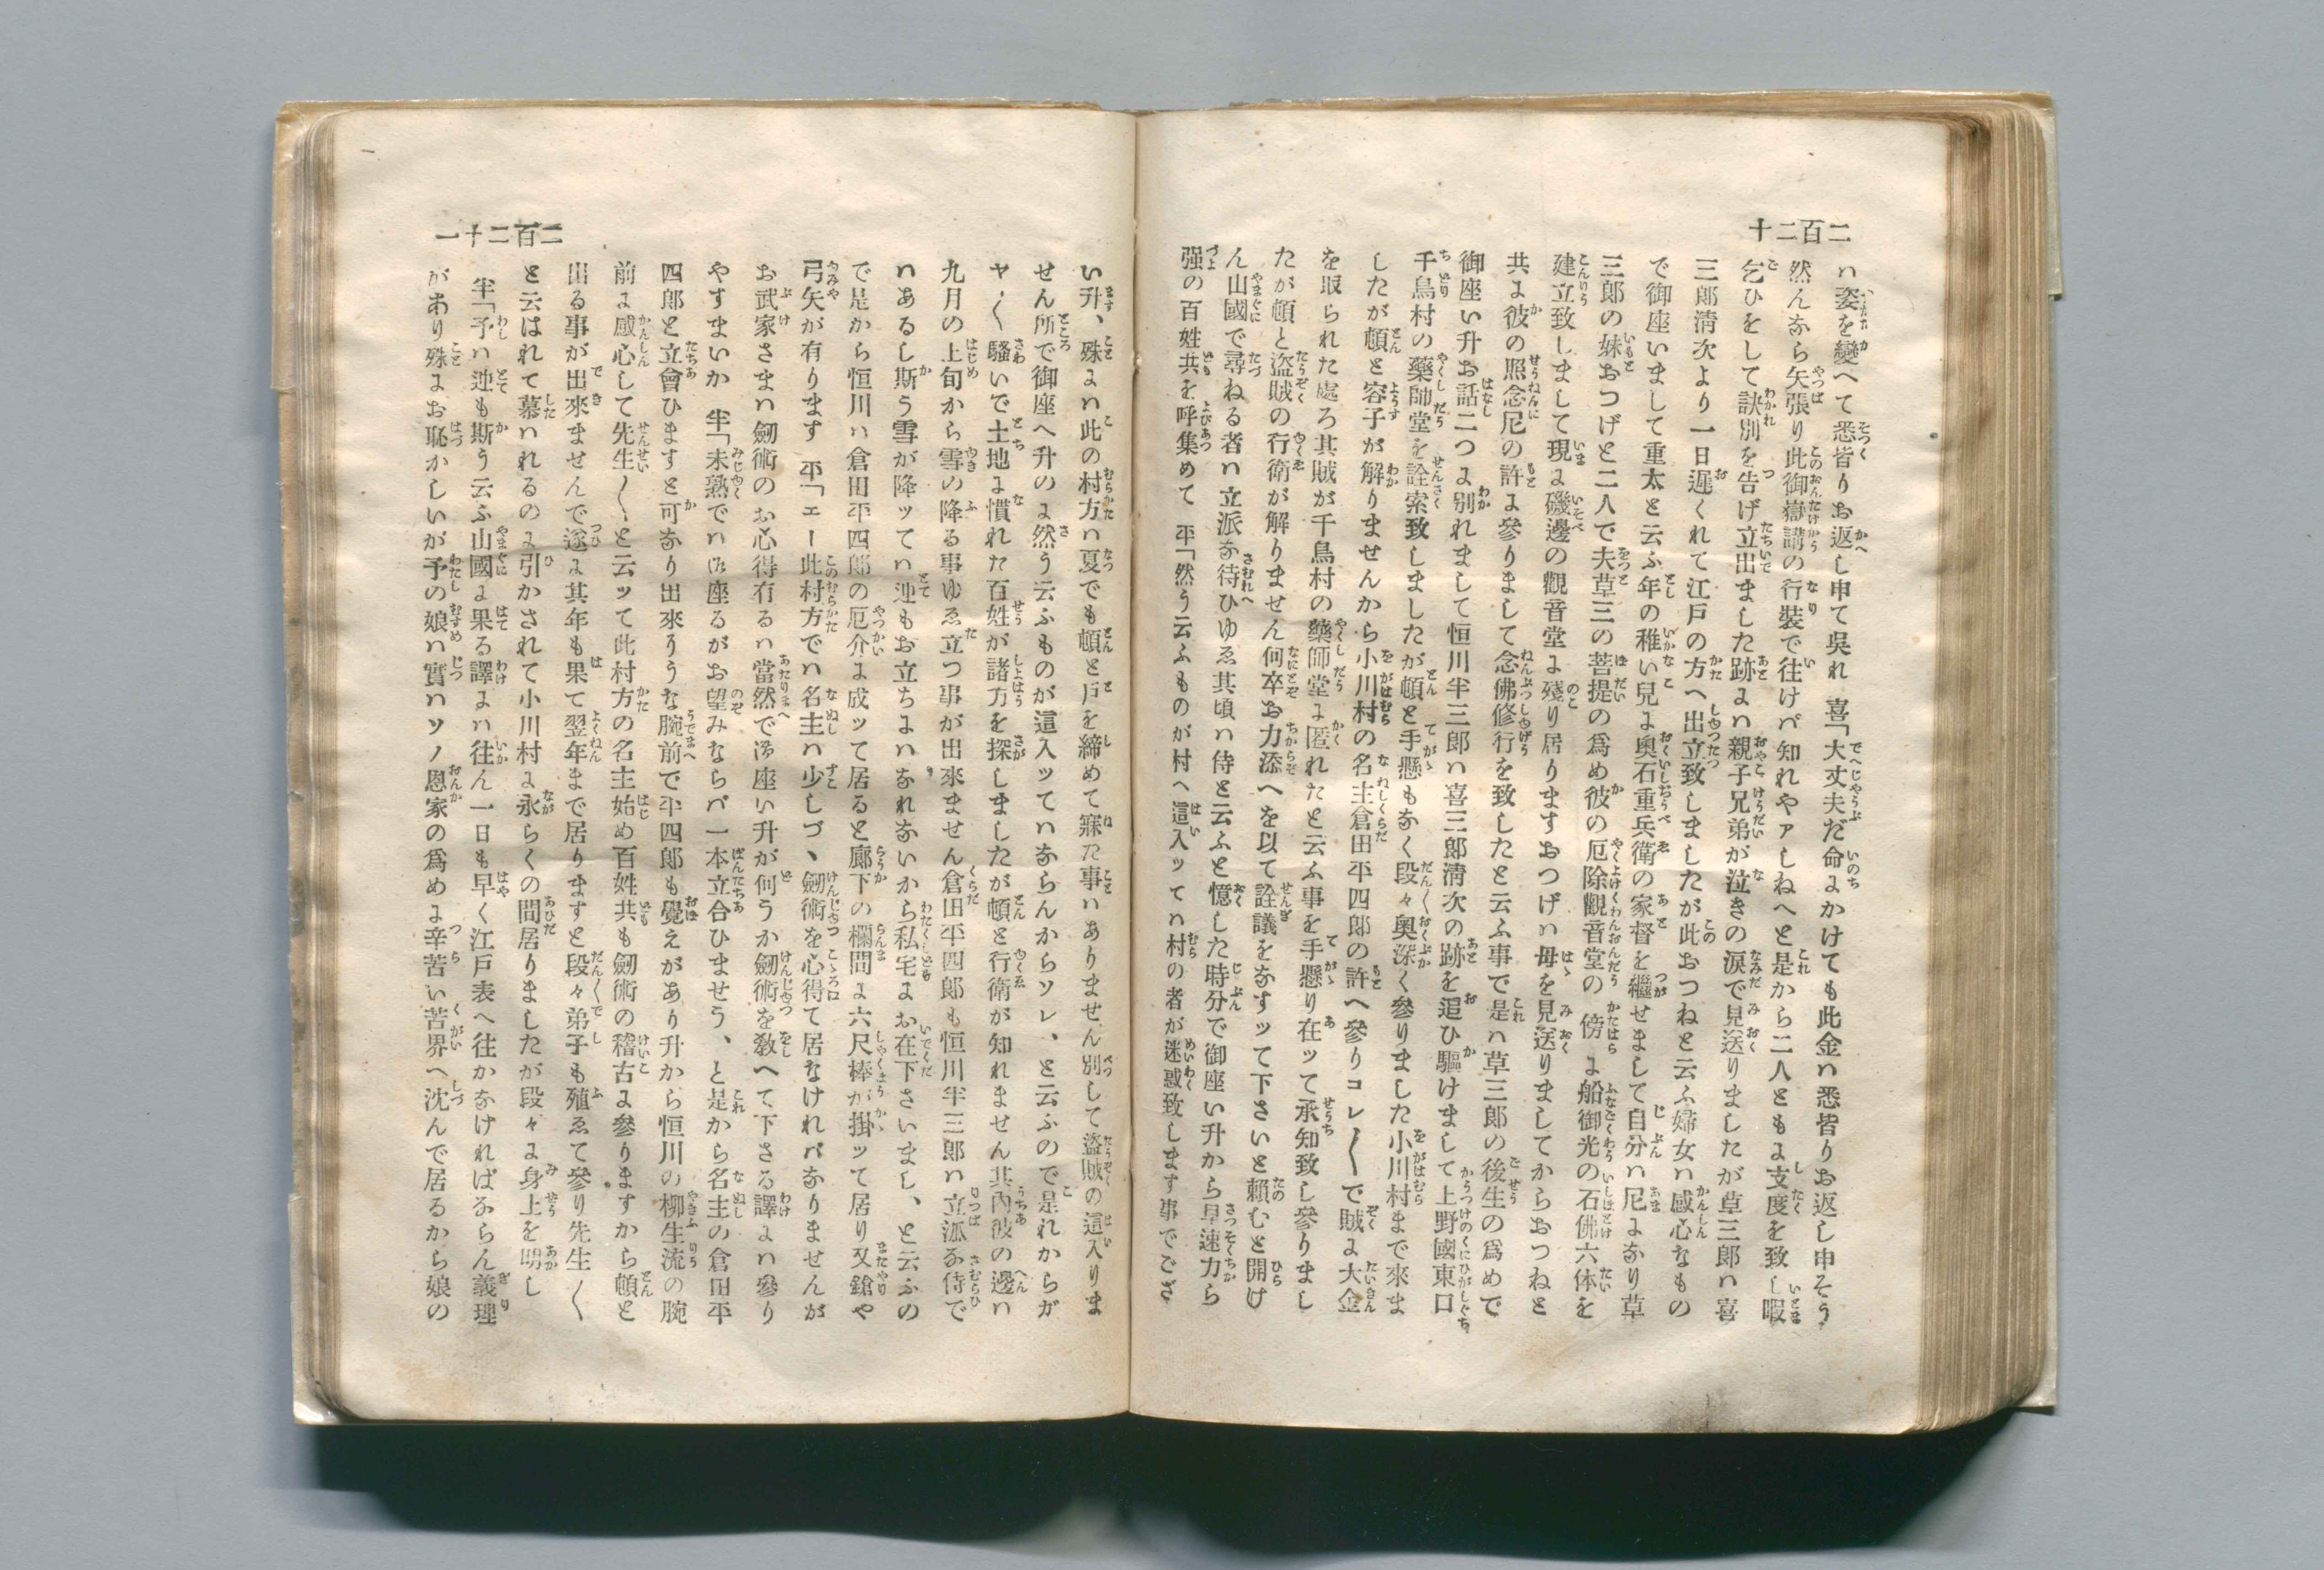 二百二十
ハ姿を變へて悉皆りお返し申て呉れ　喜「大丈夫だ命にかけても此金ハ悉皆りお返し申そう
然んなら矢張り此御嶽講の行裝で往けバ知れやアしねへと是から二人ともに支度を致し暇
乞ひをして訣別を告げ立出ました跡にハ親子兄弟が泣きの涙で見送りましたが草三郎ハ喜
三郎淸次より一日遲くれて江戸の方へ出立致しましたが此おつねと云ふ婦女ハ感心なもの
で御座いまして重太と云ふ年の稚い兒に奧石重兵衛の家督を繼せまして自分ハ尼になり草
三郎の妹おつげと二人で夫草三の菩提の爲め彼の厄除觀音堂の傍に船御光の石佛六体を
建立致しまして現に磯邊の觀音堂に殘り居りますおつげハ母を見送りましてからおつねと
共に彼の照念尼の許に參りまして念佛修行を致したと云ふ事で是ハ草三郎の後生の爲めで
御座い升お話二つに別れまして恒川半三郎ハ喜三郎淸次の跡を追ひ驅けまして上野國東口
千鳥村の藥師堂を詮索致しましたが頓と手懸もなく段々奧深く參りました小川村まで來ま
したが頓と容子が解りませんから小川村の名主倉田平四郎の許へ參りコレ〳〵で賊に大金
を取られた處ろ其賊が千鳥村の藥師堂に匿れたと云ふ事を手懸り在ッて承知致し參りまし
たが頓と盜賊の行衛が解りません何卒お力添へを以て詮議をなすッて下さいと賴むと開け
ん山國で尋ねる者ハ立派な待ひゆゑ其頃ハ侍と云ふと憶した時分で御座い升から早速力ら
强の百姓共を呼集めて　平「然う云ふものが村へ這入ッてハ村の者が迷惑致します事でござ
二百二十一
い升、殊にハ此の村方ハ夏でも頓と戸を締めて寐た事ハありません別して盜賊の這入りま
せん所で御座へ升のに然う云ふものが這入ッてハならんからソレ、と云ふので是れからガ
ヤ〳〵騷いで土地に慣れた百姓が諸方を探しましたが頓と行衛が知れません其內彼の邊ハ
九月の上旬から雪の降る事ゆゑ立つ事が出來ません倉田平四郎も恒川半三郎ハ立派な侍で
ハあるし斯う雪が降ッてハ迚もお立ちにハなれないから私宅にお在下さいまし、と云ふの
で是から恒川ハ倉田平四郎の厄介に成ッて居ると廊下の欄間に六尺棒が掛ッて居り又鎗や
弓矢が有ります　平「エー此村方でハ名主ハ少しづゝ劔術を心得て居なけれバなりませんが
お武家さまハ劔術のお心得有るハ當然で御座い升が何うか劔術を敎へて下さる譯にハ參り
やすまいか　半「未熟でハ御座るがお望みならバ一本立合ひませう、と是から名主の倉田平
四郎と立會ひますと可なり出來うな腕前で平四郎も覺えがあり升から恒川の柳生流の腕
前に感心して先生〳〵と云ッて此村方の名主始め百姓共も劔術の稽古に參りますから頓と
出る事が出來ませんで遂に其年も果て翌年まで居りますと段々弟子も殖ゑて參り先生〳〵
と云はれて慕ハれるのに引かされて小川村に永らくの間居りましたが段々に身上を明し
半「予ハ迚も斯う云ふ山國に果る譯にハ往ん一日も早く江戸表へ往かなければならん義理
があり殊にお恥かしいが予の娘ハ實ハソノ恩家の爲めに辛苦い苦界へ沈んで居るから娘の